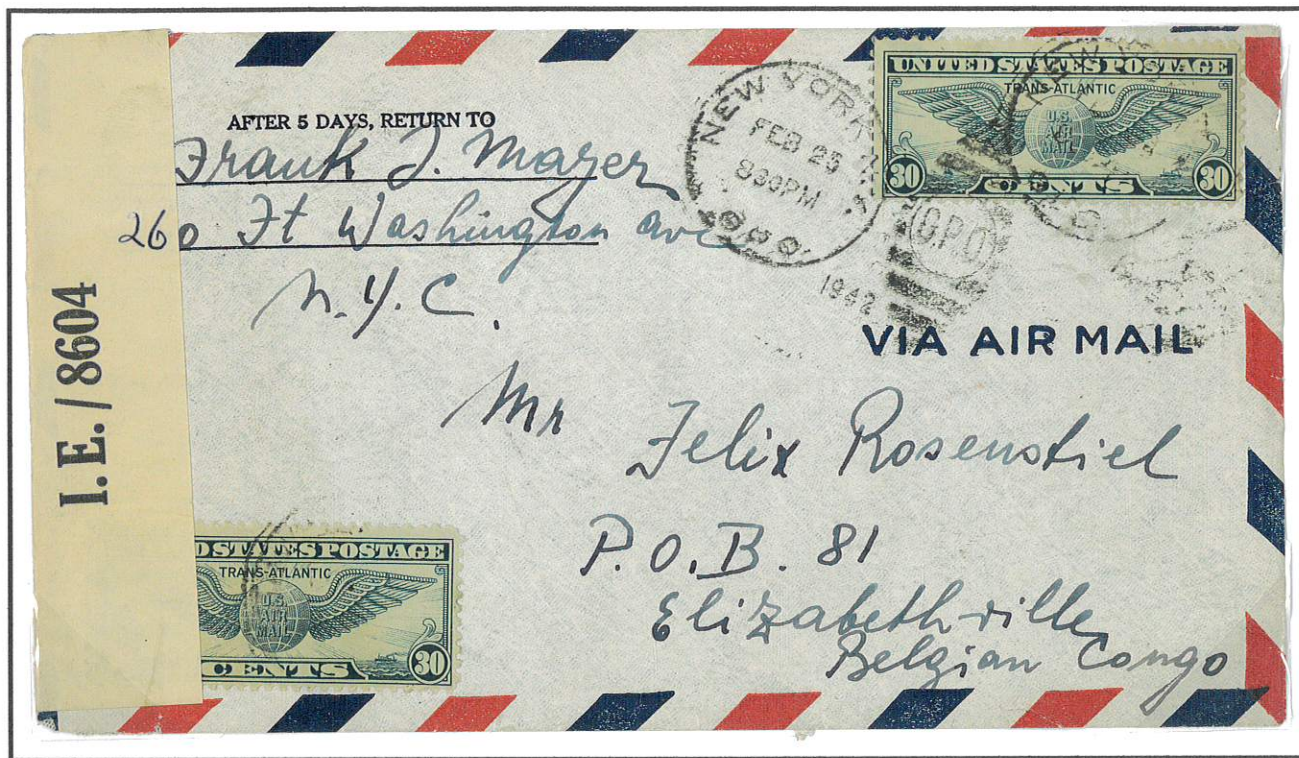 AFTER 5 DAYS, RETURN TO
Frank J. Mayer
260 Ft Washington Ave
N.Y.C.
I.E./8604
NEW YORK, N.Y.
FEB 25
830PM
1942
G.P.O.
UNITED STATES POSTAGE
TRANS-ATLANTIC
U.S.
AIR
MAIL
30 CENTS 30
VIA AIR MAIL
Mr Felix Rosenstiel
P.O.B. 81
Elizabethville
Belgian Congo
D STATES POSTAGE
TRANS-ATLANTIC
U.S.
AIR
MAIL
CENTS 30